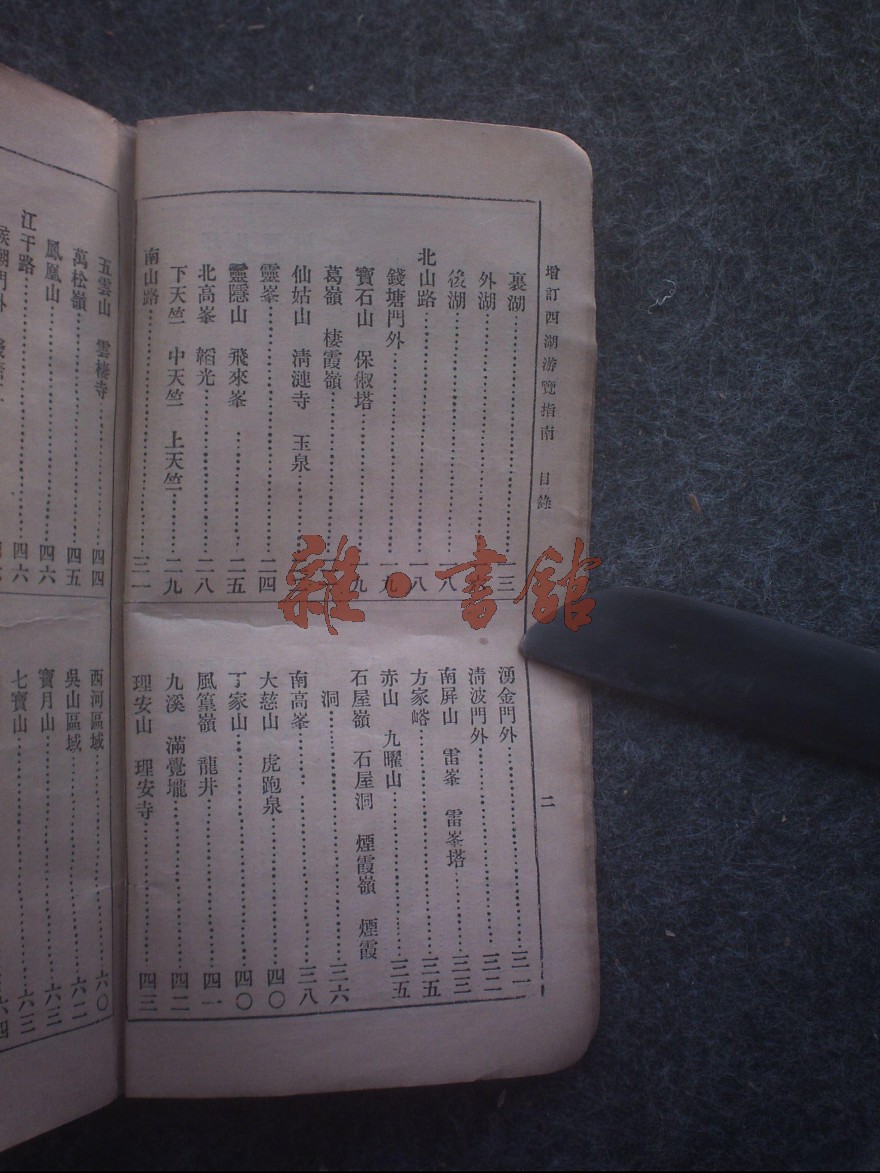 增訂西湖游覽指南 目錄 二
裏湖
外湖
後湖
北山路 一八
錢塘門外 一九
寶石山 保俶塔 一九
葛嶺 棲霞嶺
仙姑山 清漣寺 玉泉
靈峯 二四
靈隱山 飛來峯 二五
北高峯 韜光 二八
下天竺 中天竺 上天竺 二九
南山路 三一
湧金門外 三一
清波門外 三二
南屏山 雷峯 雷峯塔 三三
方家峪 三五
赤山 九曜山 三五
石屋嶺 石屋洞 煙霞嶺 煙霞
洞 三六
南高峯 三八
大慈山 虎跑泉 四〇
丁家山 四〇
風篁嶺 龍井 四一
九溪 滿覺壠 四二
理安山 理安寺 四三
五雲山 雲棲寺 四四
萬松嶺 四五
鳳凰山 四六
江干路 四六
候潮門外
西河區域 六〇
吳山區域 六二
寶月山 六三
七寶山 六三
六四
雜·書館